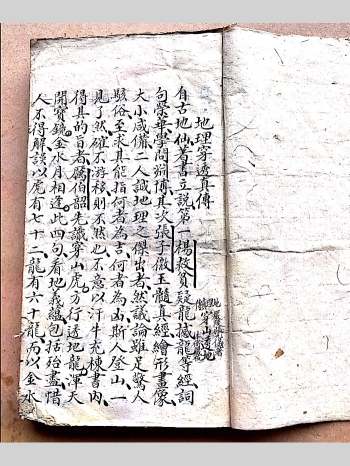 地理穿透真傳
自古地仙着書立說第一楊救貧疑龍撼龍等經詞
句榮華學問淵博其次張子微玉髓真經繪形畫像
大小咸備二人誠地理之傑出者然議論雖足驚人
駭俗至求真能指何者為吉何者為凶斯人登山一
見了然確不游移則不然也不意以汗牛充棟書內
得其的旨者厲伯韶先識穿山虎方行透地龍渾天
開寶鏡金水月相逢此四句看地義蘊包括殆盡惜
人不得解誤以虎有七十二龍有六十龍丙以金水